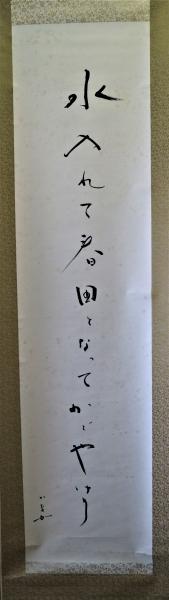 水入れて春田となってかゞやけり